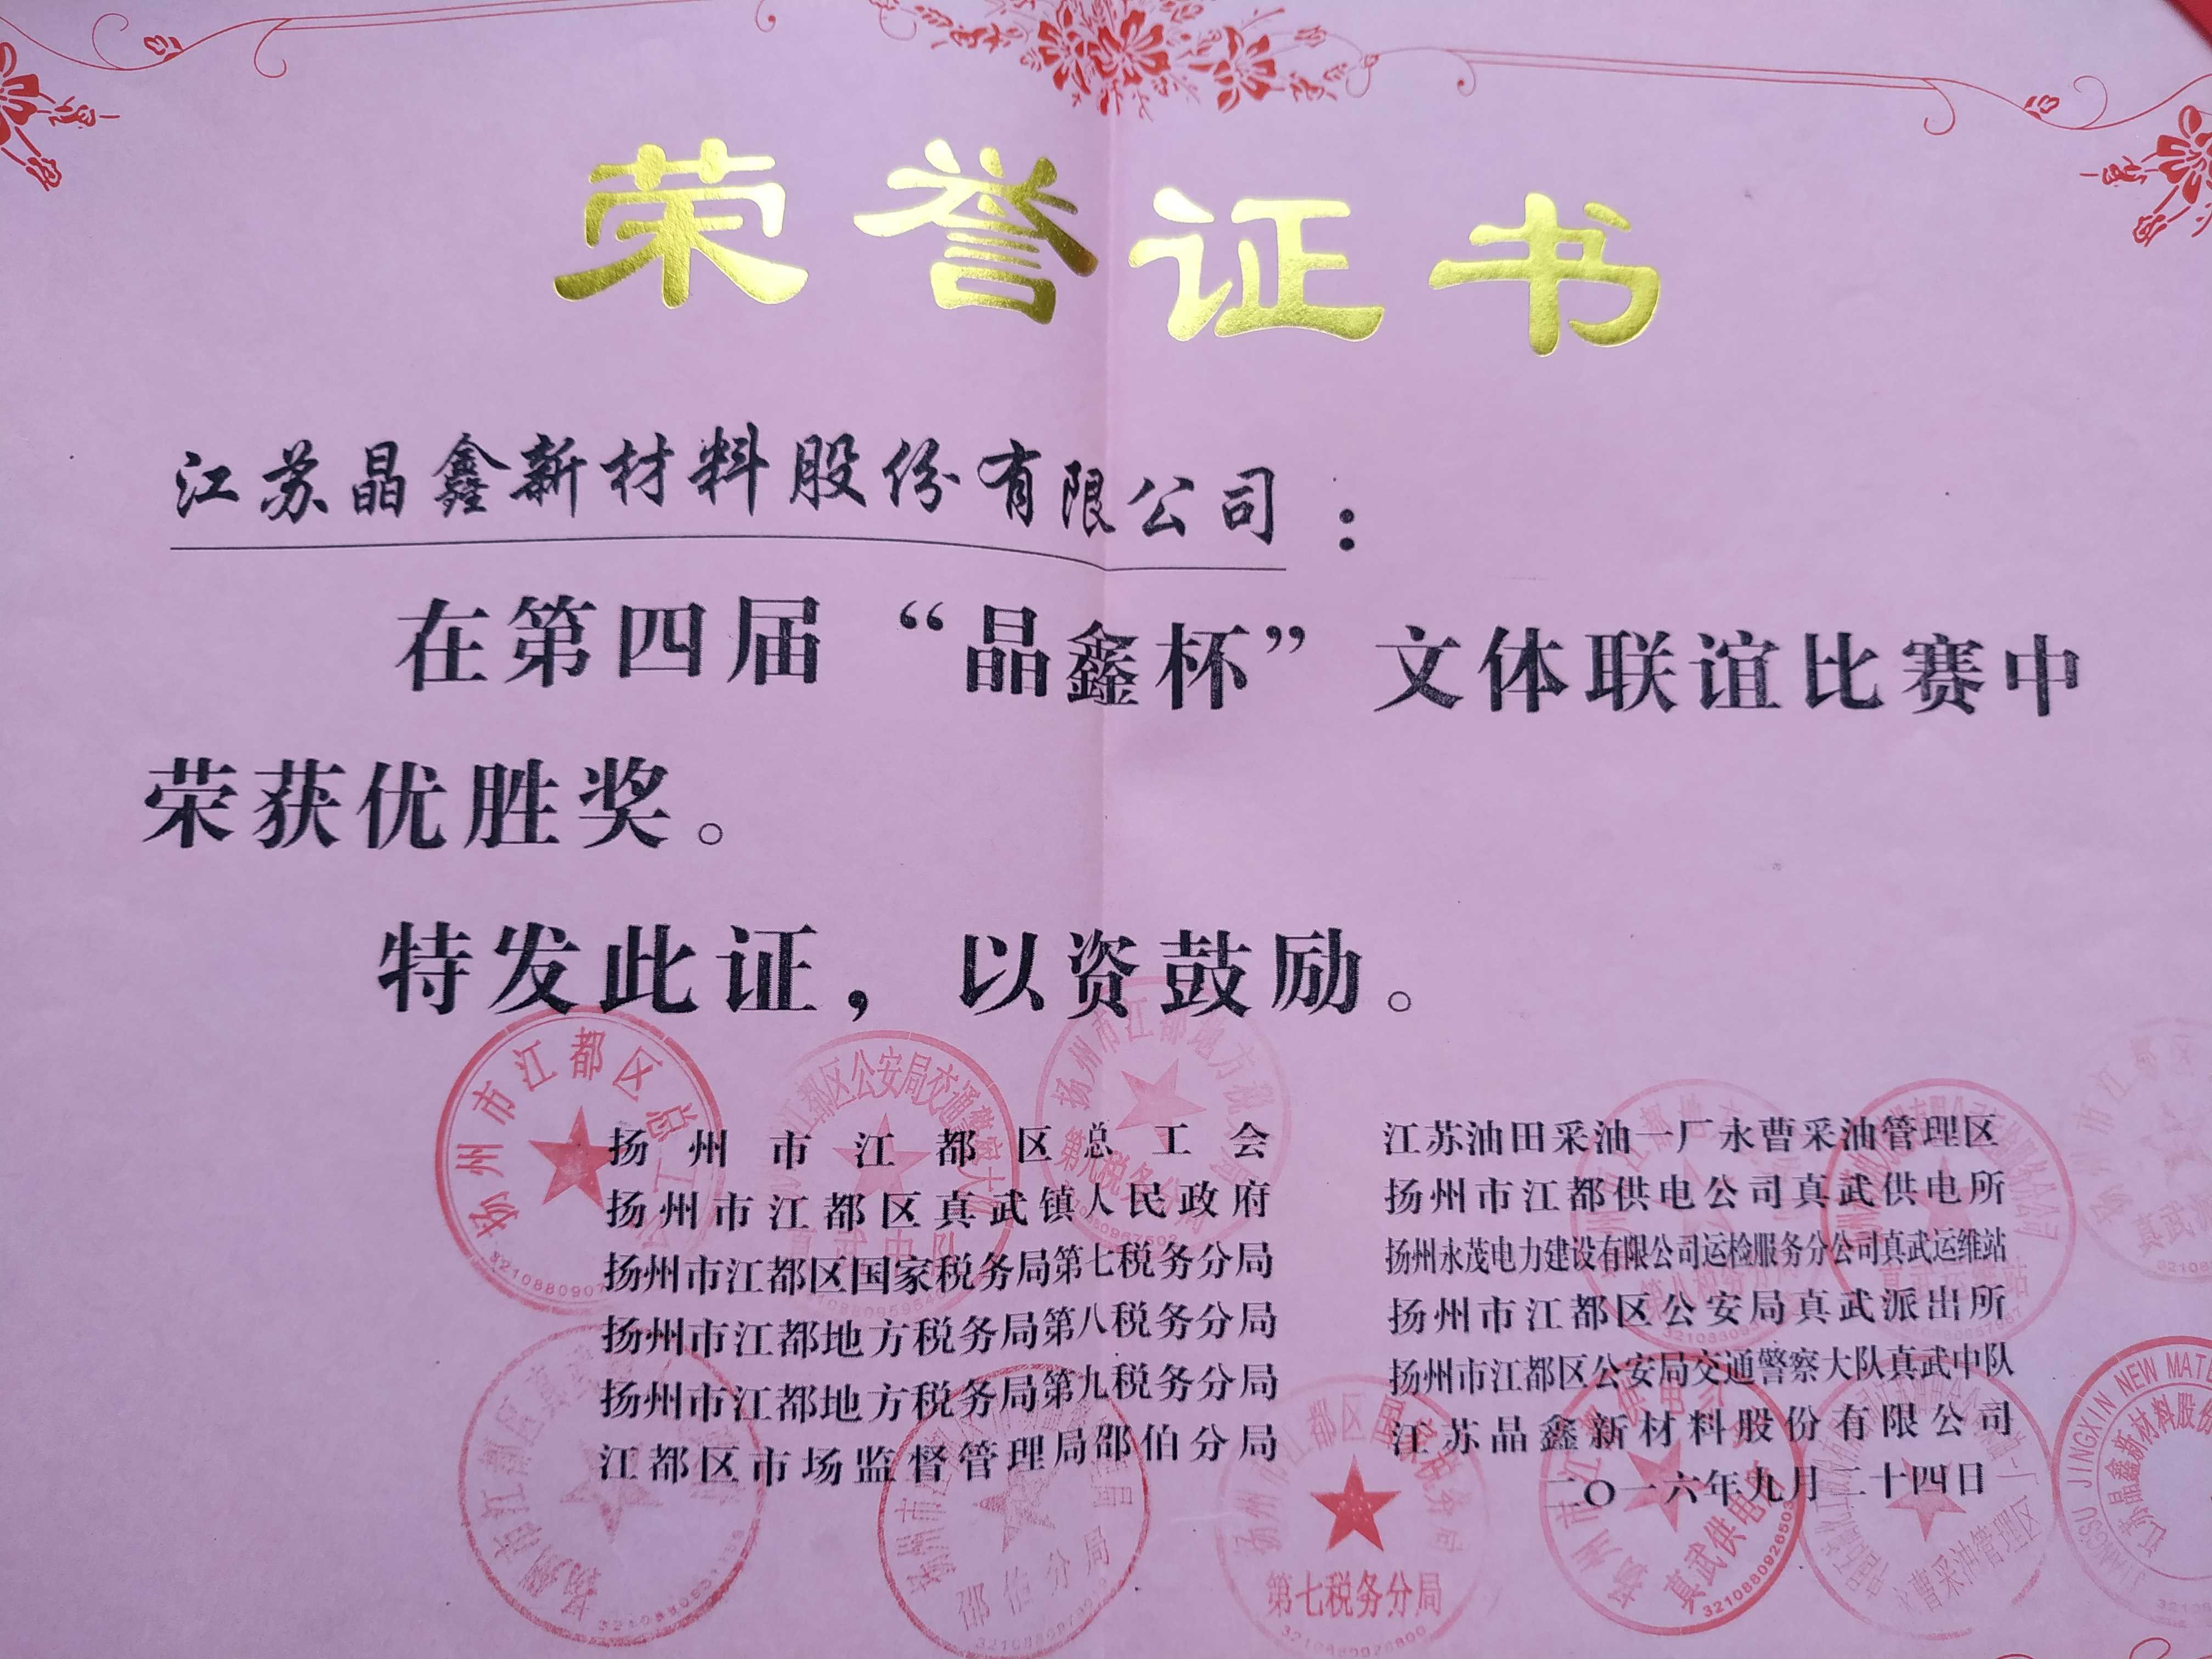 荣誉证书
江苏晶鑫新材料股份有限公司：
在第四届“晶鑫杯”文体联谊比赛中
荣获优胜奖。
特发此证，以资鼓励。
扬州市江都区总工会
扬州市江都区真武镇人民政府
扬州市江都区国家税务局第七税务分局
扬州市江都地方税务局第八税务分局
扬州市江都地方税务局第九税务分局
江都区市场监督管理局邵伯分局
江苏油田采油一厂永曹采油管理区
扬州市江都供电公司真武供电所
扬州永茂电力建设有限公司运检服务分公司真武运维站
扬州市江都区公安局真武派出所
扬州市江都区公安局交通警察大队真武中队
江苏晶鑫新材料股份有限公司
二〇一六年九月二十四日
扬州市江都区总工
江都区公安局交通警察大
真武中队
扬州市江都地方税
第九税务分
邵伯分局
第七税务分局
真武供电
曹采油管理区
JIANGSU JINGXIN NEW MAT
江苏晶鑫新材料股份